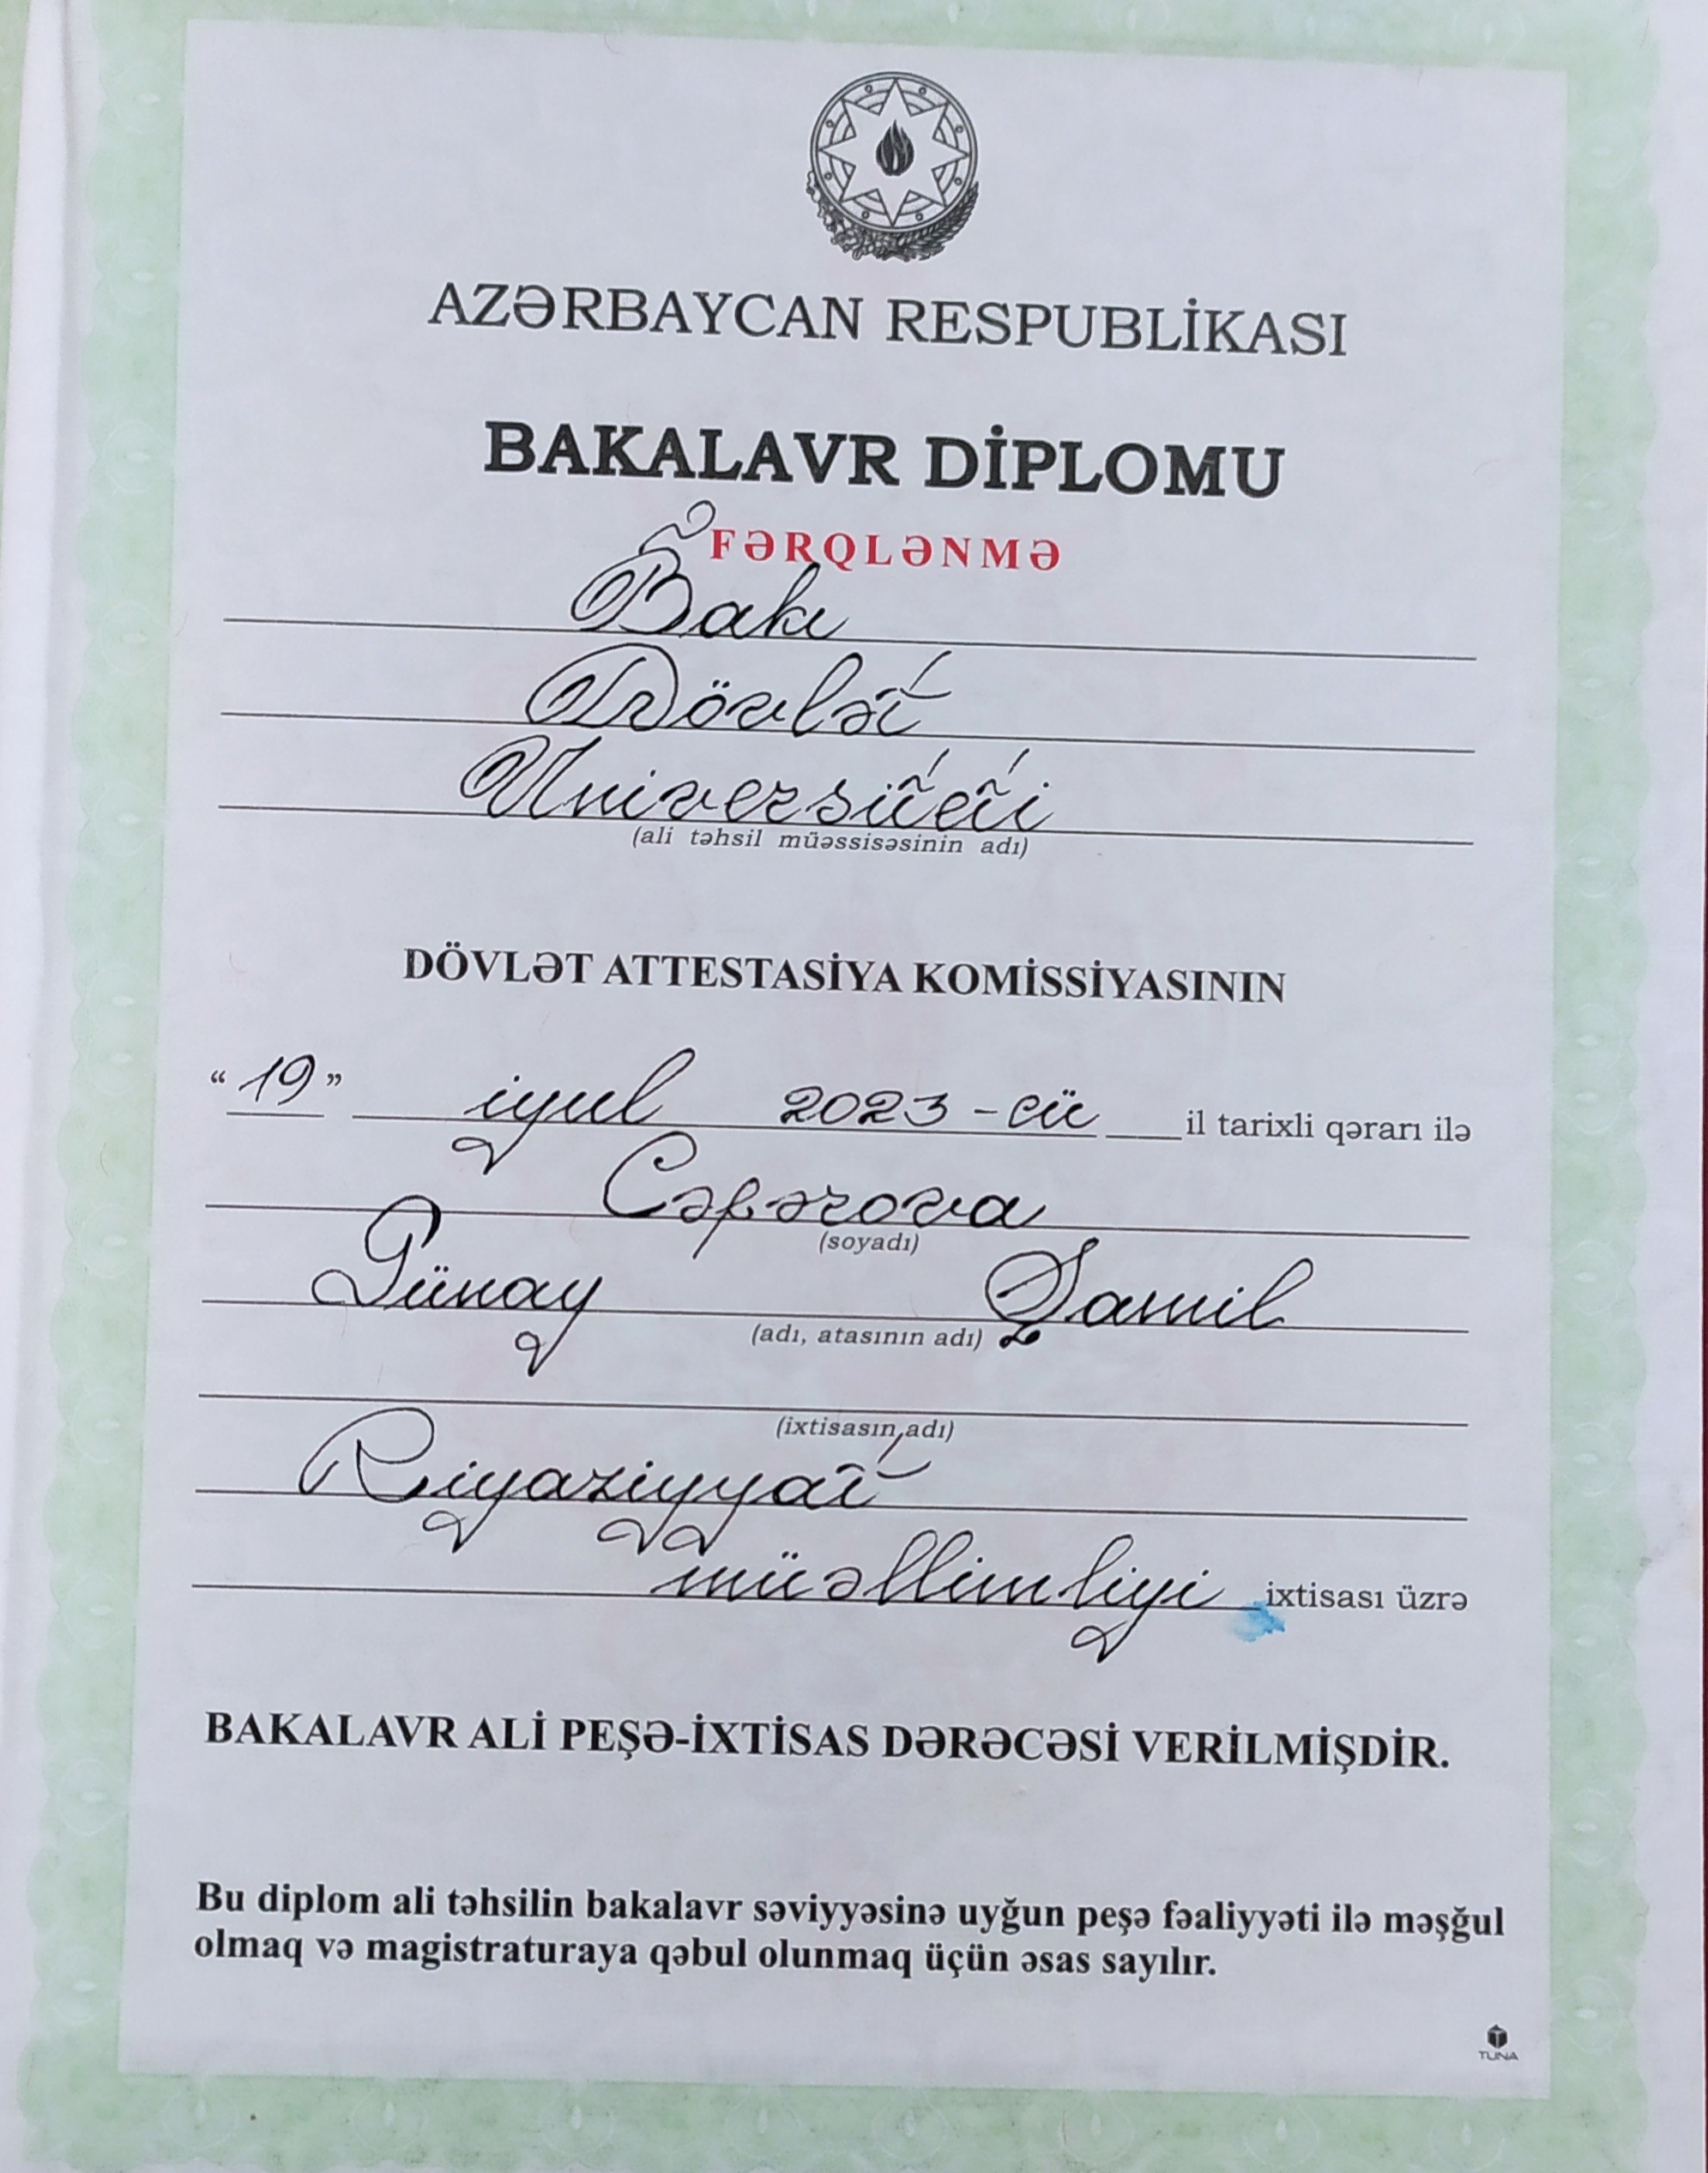 AZƏRBAYCAN RESPUBLİKASI
BAKALAVR DİPLOMU
FƏRQLƏNMƏ
Bakı
Dövlət
Universiteti
(ali təhsil müəssisəsinin adı)
DÖVLƏT ATTESTASİYA KOMİSSİYASININ
“19” iyul 2023-cü il tarixli qərarı ilə
Cəfərova
(soyadı)
Günay Şamil
(adı, atasının adı)
(ixtisasın adı)
Riyaziyyat
müəllimliyi ixtisası üzrə
BAKALAVR ALİ PEŞƏ-İXTİSAS DƏRƏCƏSİ VERİLMİŞDİR.
Bu diplom ali təhsilin bakalavr səviyyəsinə uyğun peşə fəaliyyəti ilə məşğul
olmaq və magistraturaya qəbul olunmaq üçün əsas sayılır.
TUNA